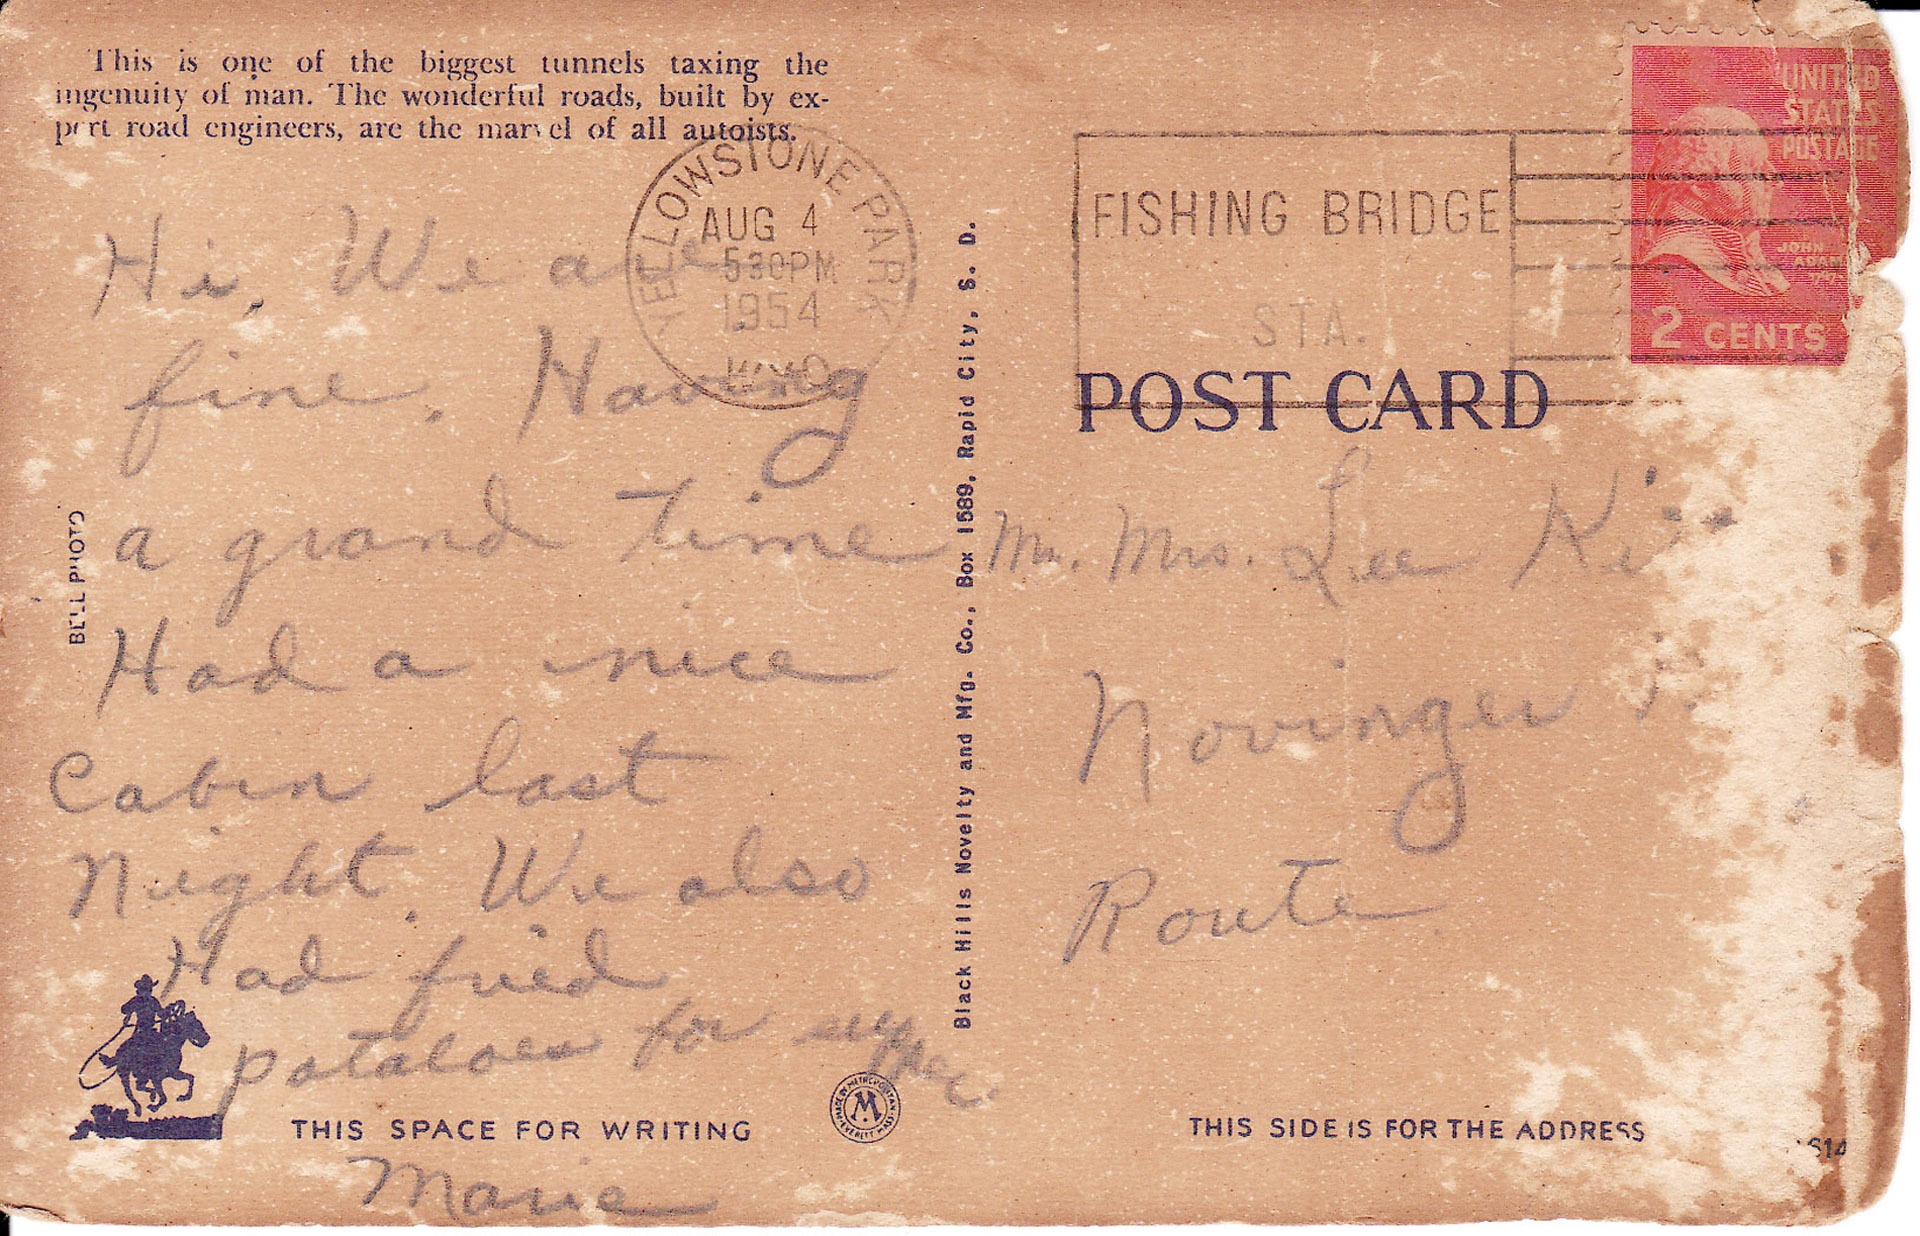 This is one of the biggest tunnels taxing the
ingenuity of man. The wonderful roads, built by ex-
pert road engineers, are the marvel of all autoists.
YELLOWSTONE PARK
AUG 4
530PM
1954
WYO
FISHING BRIDGE
STA.
UNITED
STATES
POSTAGE
JOHN
ADAMS
2 CENTS
POST CARD
Hi, We are
fine. Having
a grand time
Had a nice
Cabin last
Night. We also
Had fried
potatoes for supper.
Marie
BELL PHOTO
Black Hills Novelty and Mfg. Co., Box 1589, Rapid City, S. D.
Mr. Mrs. Lee
Novinger
Route
THIS SPACE FOR WRITING
MADE BY METROPOLITAN
M
EVERETT MASS
THIS SIDE IS FOR THE ADDRESS